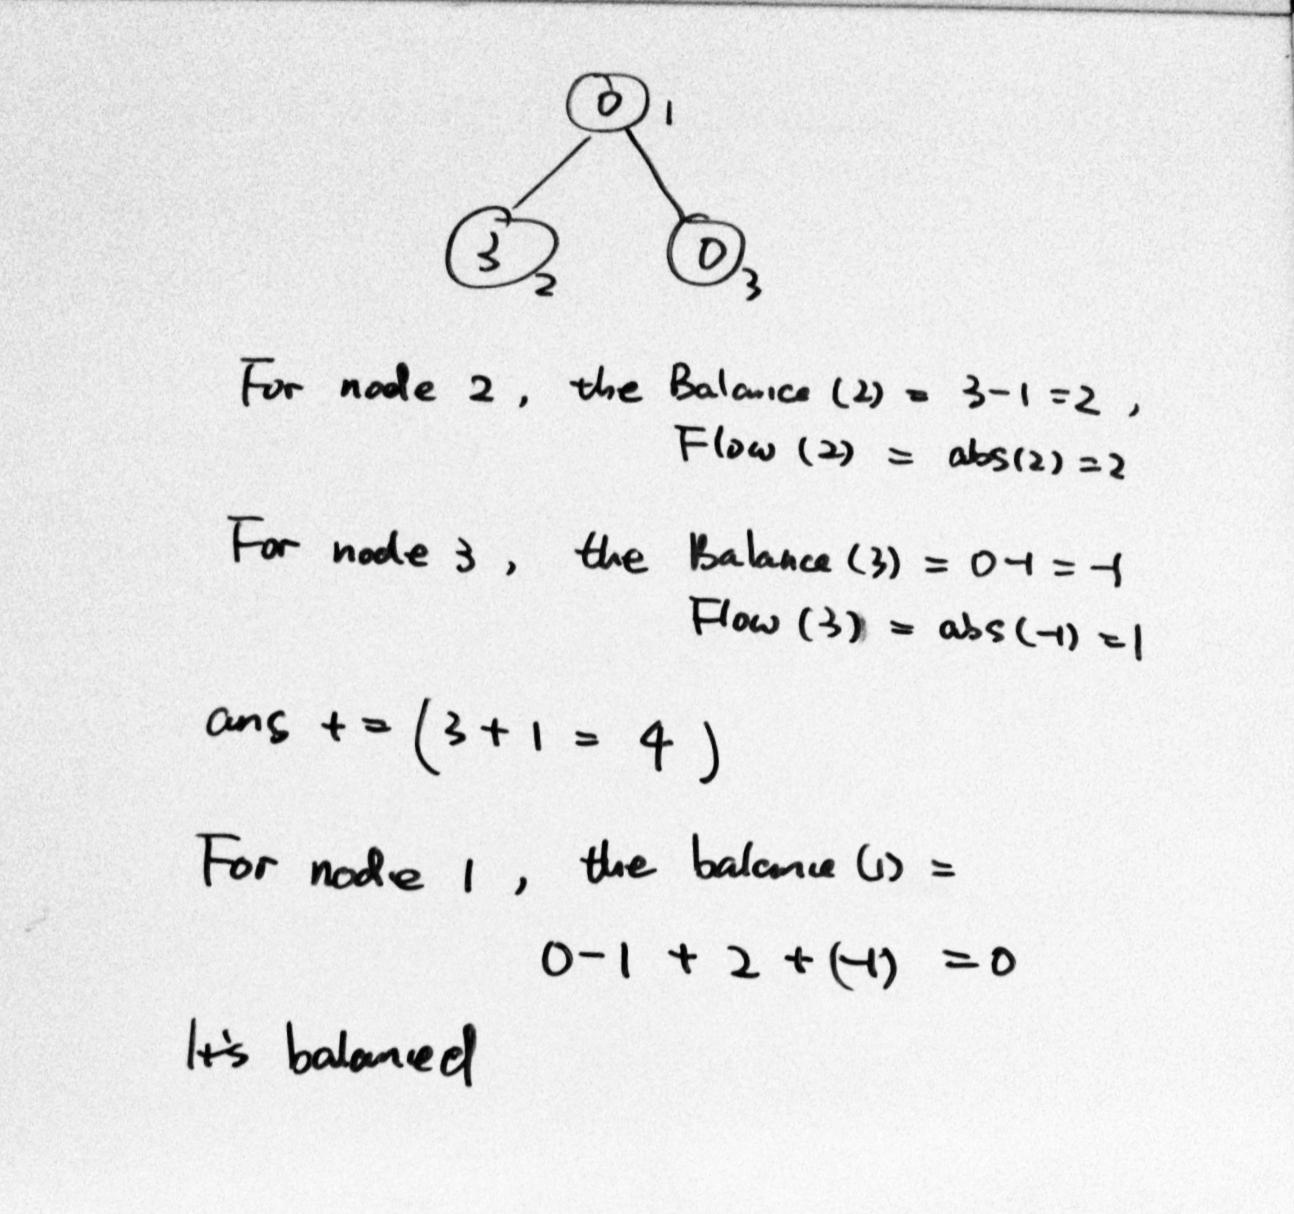 0 1
3 2 0 3
For node 2, the Balance (2) = 3-1=2,
Flow (2) = abs(2)=2
For node 3, the Balance (3) = 0-1=-1
Flow (3) = abs(-1)=1
ans += (3+1=4)
For node 1, the balance (1) =
0-1+2+(-1) =0
It's balanced